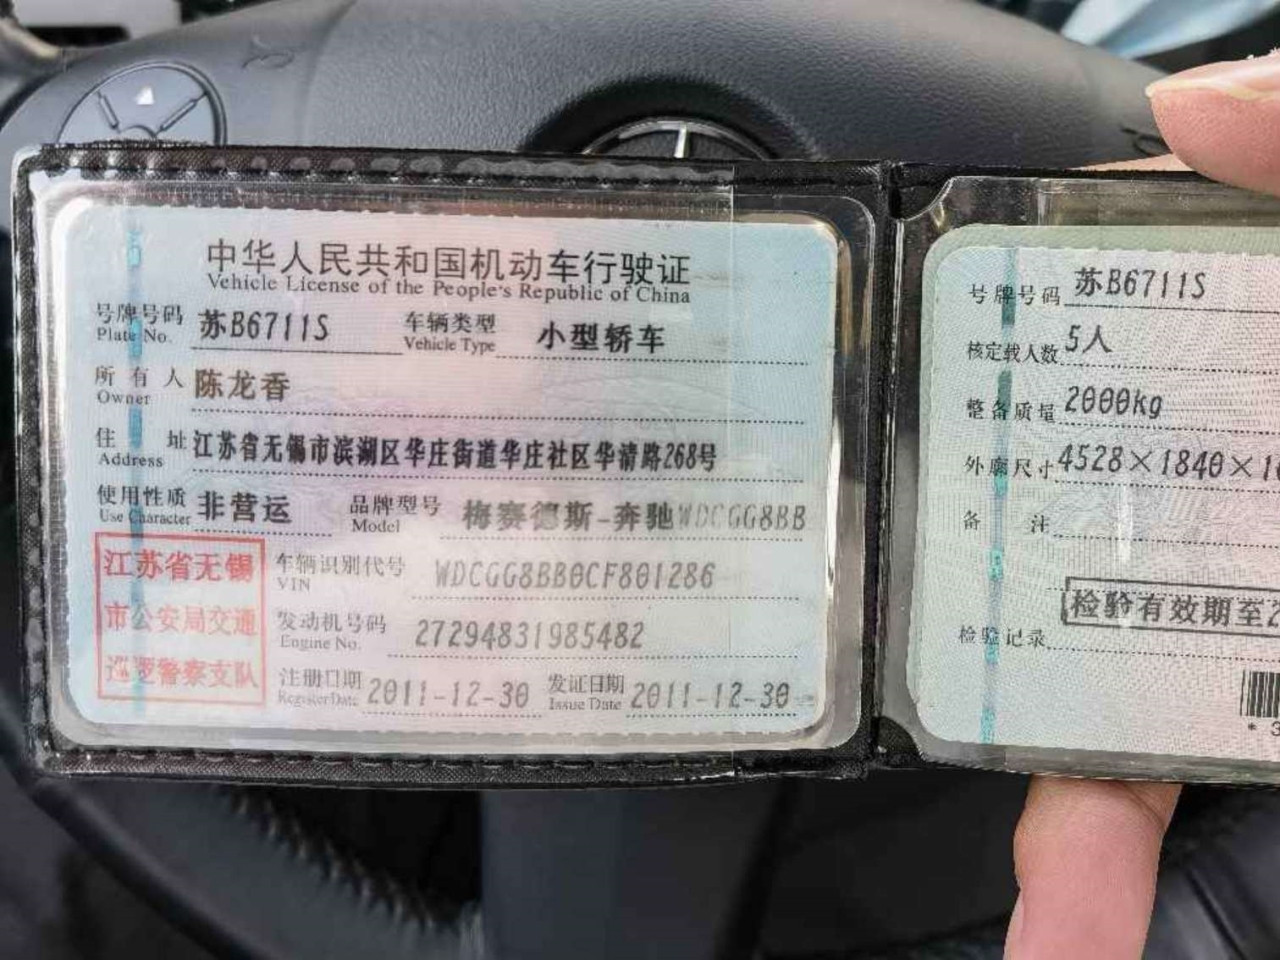 中华人民共和国机动车行驶证
Vehicle License of the People's Republic of China
号牌号码 苏B6711S 车辆类型 小型轿车
Plate No. Vehicle Type
所有人 陈龙香
Owner
住址 江苏省无锡市滨湖区华庄街道华庄社区华清路268号
Address
使用性质 非营运 品牌型号 梅赛德斯-奔驰WDCGG8BB
Use Character Model
江苏省无锡
市公安局交通
巡逻警察支队
车辆识别代号 WDCGG8BB0CF801286
VIN
发动机号码 27294831985482
Engine No.
注册日期 2011-12-30 发证日期 2011-12-30
Register Date Issue Date
号牌号码 苏B6711S
核定载人数 5人
整备质量 2000kg
外廓尺寸 4528×1840×1
备注
检验有效期至2
检验记录
* 3